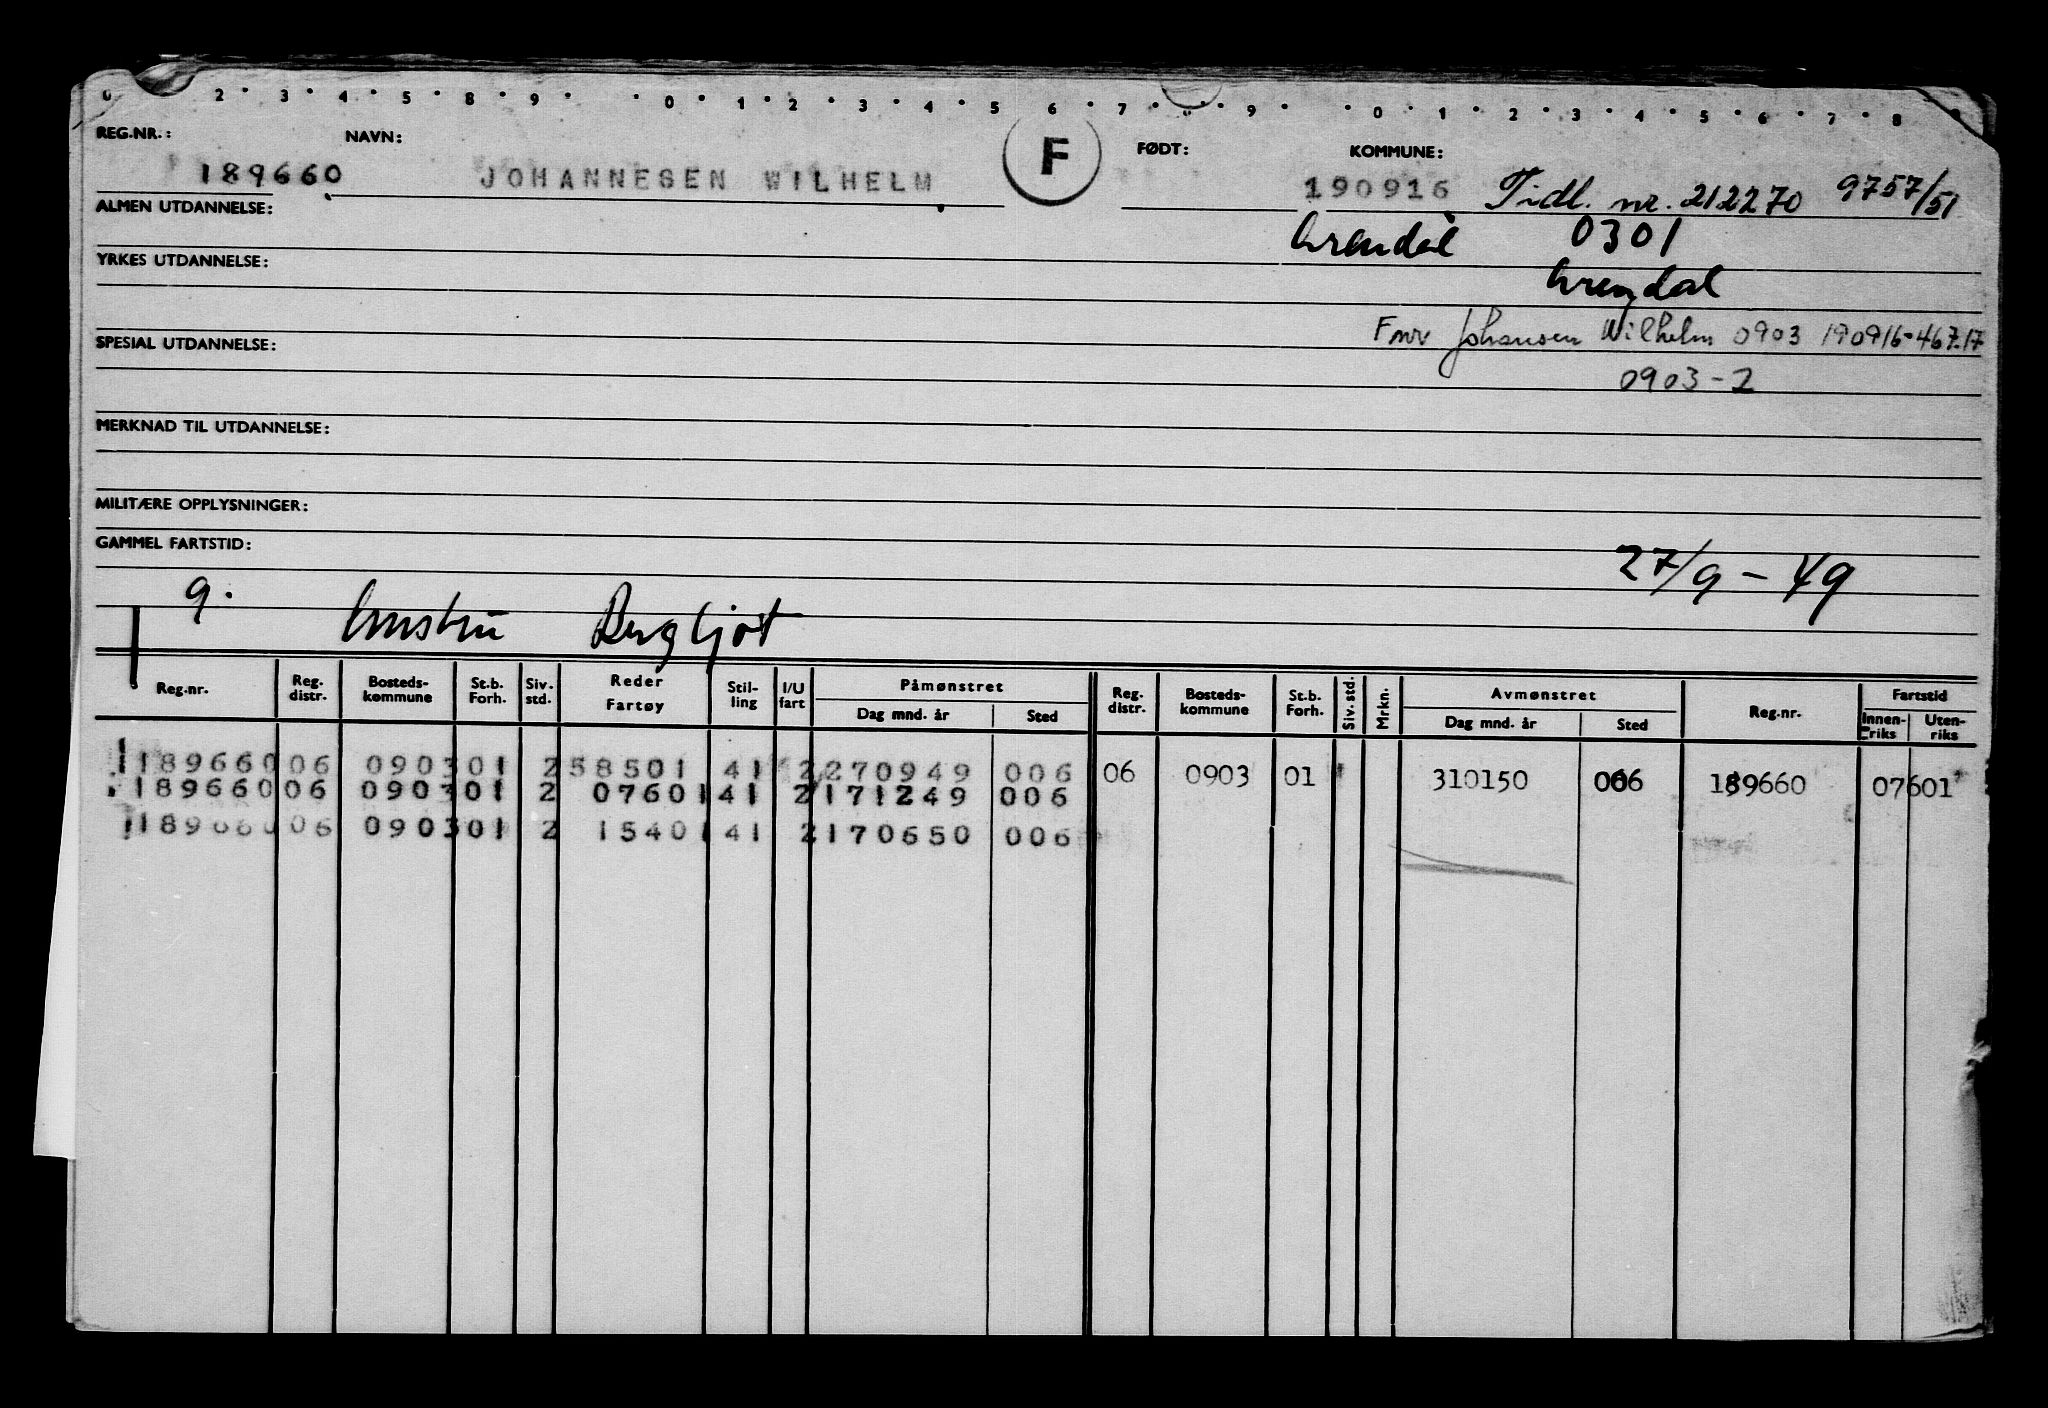 0 2 3 4 5 8 9 0 1 2 3 4 5 6 7 8 9 0 1 2 3 4 5 6 7 8 9
REG.NR.: NAVN: F FØDT: KOMMUNE:
189660 JOHANNESEN WILHELM 190916 Tidl. nr. 212270 9757/51
ALMEN UTDANNELSE: Arendal 0301
YRKES UTDANNELSE: Arendal
Fnr Johansen Wilhelm 0903 190916-467.17
SPESIAL UTDANNELSE:
0903-2
MERKNAD TIL UTDANNELSE:
MILITÆRE OPPLYSNINGER:
GAMMEL FARTSTID: 27/9-49
9. hustru Bergljot
Reg.nr. Reg. distr. Bosteds-kommune St.b. Forh. Siv. std. Reder Fartøy Stil-ling I/U fart Påmønstret Dag mnd. år Sted Reg. distr. Bosteds-kommune St.b. Forh. Siv. std. Mrkn. Avmønstret Dag mnd. år Sted Reg.nr. Fartstid Innen-riks Uten-riks
189660 06 0903 01 2 58501 41 2 270949 006 06 0903 01 310150 006 189660 07601
189660 06 0903 01 2 07601 41 2 171249 006
189660 06 0903 01 2 15401 41 2 170650 006